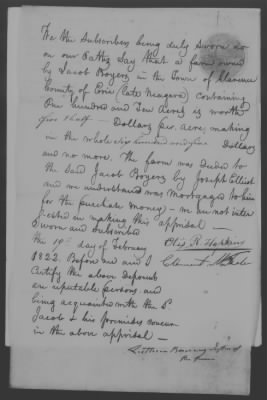 We the Subscribers being duly sworn do
on our Oaths Say that a farm owned
by Jacob Boyers in the Town of Clarence
County of Erie (late Niagara) containing
One hundred and Ten Acres is worth
five & half — Dollars per. acre, making
in the whole Six hundred and five Dollars
and no more. The farm was deeded to
the said Jacob Boyers by Joseph Ellicott
and we understand was mortgaged to him
for the purchase money — we are not inter
ested in making this apprisal —
Sworn and subscribed
the 19th day of February Otis R. Hopkins
1822. Before me and I
Certify the above deponents
are reputable persons and
being acquainted with the Sd
Jacob & his premises concur
in the above apprisal —